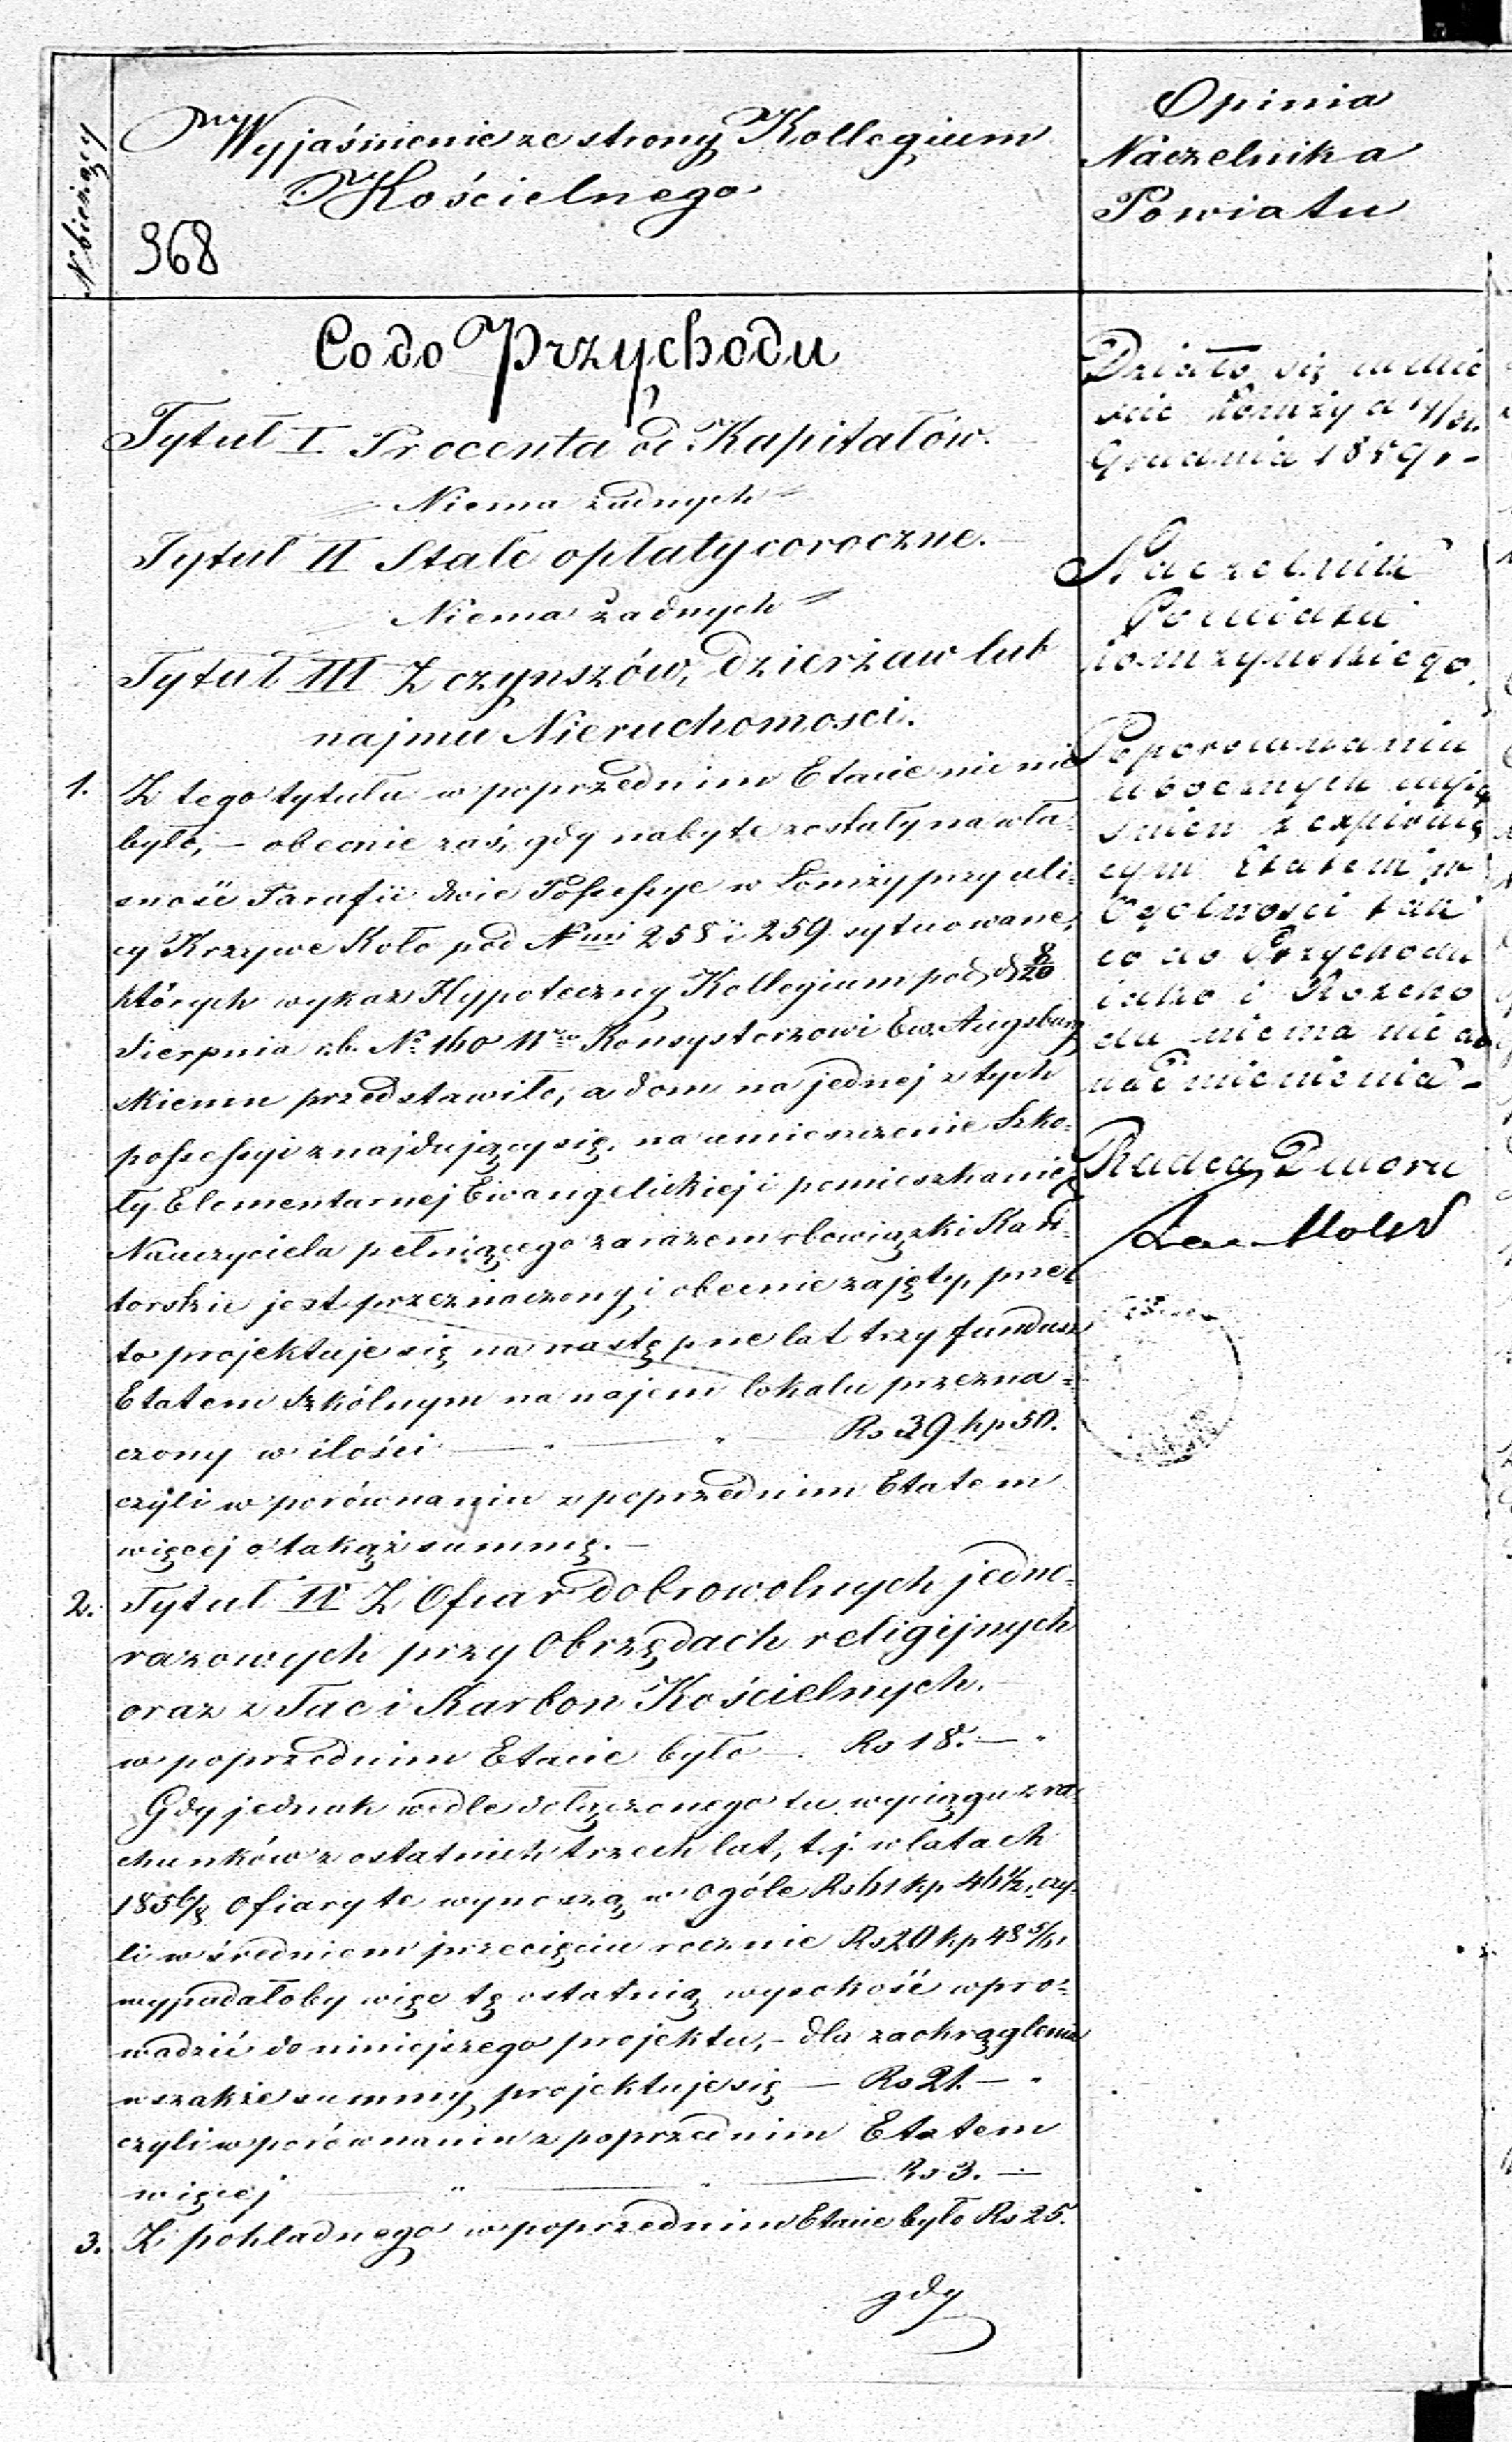 N bieżący
Wyjaśnienie ze strony Kollegium
Kościelnego
968
Opinia
Naczelnika
Powiatu
Co do Przychodu
Tytuł I Procenta od Kapitałów.
Niema żadnych
Tytuł II Stałe opłaty coroczne.
Niema żadnych
Tytuł III Z czynszów, dzierżaw lub
najmu Nieruchomosci.
1. Z tego tytułu w poprzednim Etacie nic nie
było, – obecnie zaś, gdy nabyte zostały na wła=
sność Parafii dwie Possessye w Łomży przy uli=
cy Krzywe Koło pod Nmi 258 i 259 sytuowane,
których wykaz Hypoteczny Kollegium pod d. 8/20
Sierpnia r.b. No 140 Konsystorzowi Ew. Augsburg
skiemu przedstawiło, a dom na jednej z tych
possessyi znajdujący się, na umieszczenie Szko=
ły Elementarnej Ewangelickiej i pomieszkanie
Nauczyciela pełniącego zarazem obowiązki Kan=
torskie jest przeznaczony i obecnie zajęty, prze=
to projektuje się na następne lat trzy fundusz
Etatem Szkólnym na najem lokalu przezna=
czony w ilości Rs 39 kp 50.
czyli w porównaniu z poprzednim Etatem
więcej o takąż summę. –
2. Tytuł IV Z Ofiar dobrowolnych jedno=
razowych przy Obrzędach religijnych
oraz z Tac i Karbon Kościelnych.
w poprzednim Etacie było Rs 18. –
Gdy jednak wedle dołączonego tu wyciągu z ra=
chunków z ostatnich trzech lat, t.j. w latach
1856/8 Ofiary te wynoszą w ogóle Rs 61 kp 46½, czy=
li w średniem przecięciu rocznie Rs 20 kp 48
wypadałoby więc tę ostatnią wysokość wpro=
wadzić do niniejszego projektu, – dla zaokrąglenia
wszakże summy projektuje się – Rs 21. –
czyli w porównaniu z poprzednim Etatem
więcej Rs 3. –
3. Z pokładnego w poprzednim Etacie było Rs 25.
gdy
Działo się w mie
ście Łomży d
Grudnia 1859 r. –
Naczelnik
Powiatu
Łomżyńskiego.
Po porównaniu
ubocznych wyja
śnień z expirują
cym Etatem w
Ogólności tak
co do Przychodu
jako i Rozcho
du niema nic do
nadmienienia –
Radca Dworu